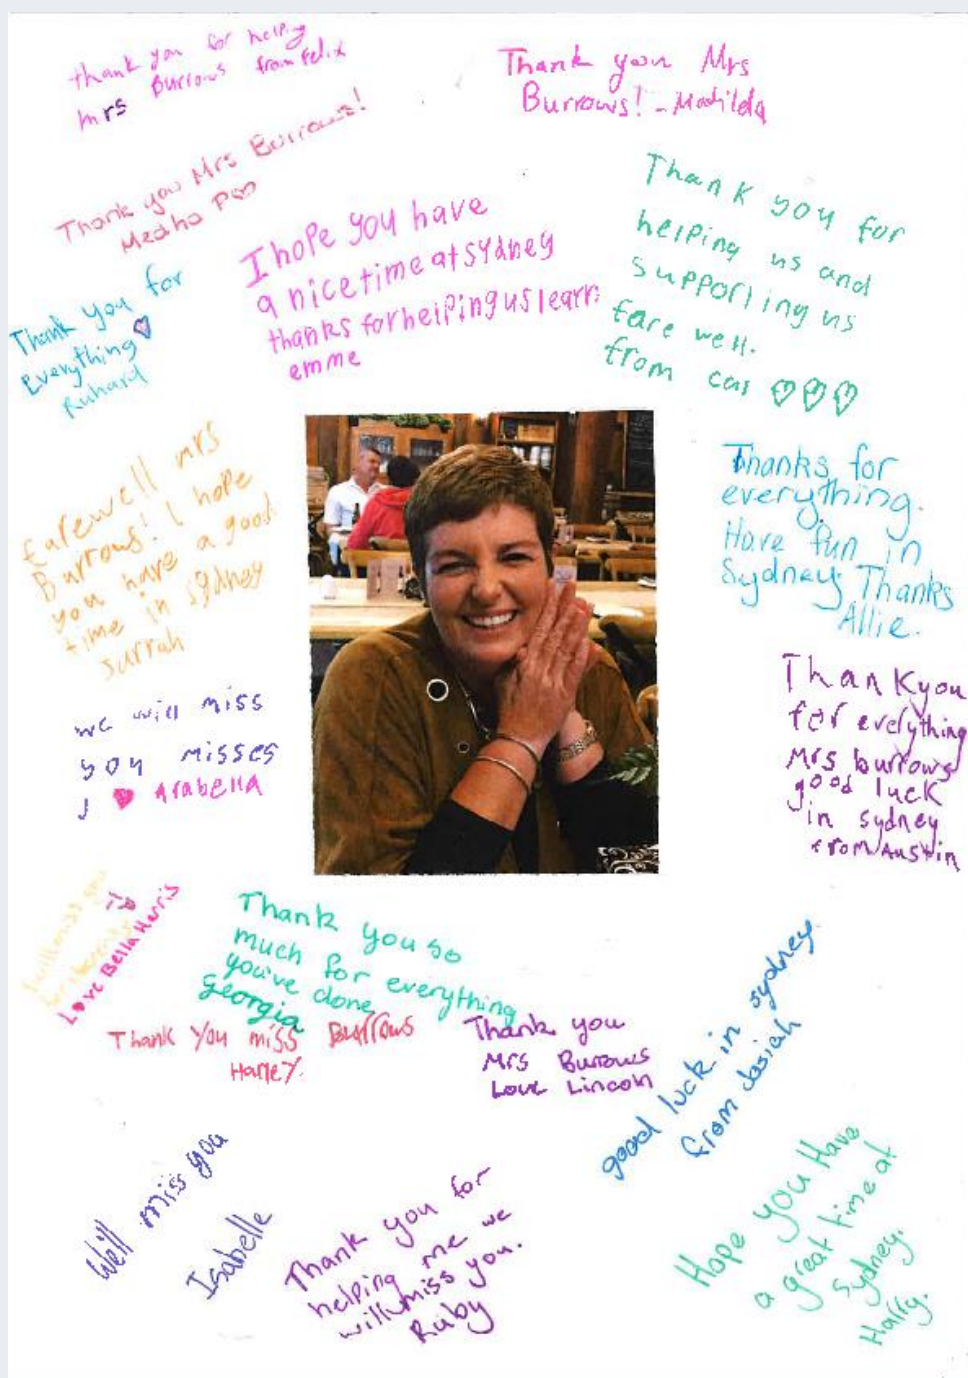 thank you for helping
mrs Burrows from Felix
Thank you Mrs
Burrows! - Matilda
Thank you Mrs Burrows!
Medha P
I hope you have
a nice time at sydney
thanks for helping us learn
emme
Thank you for
helping us and
supporting us
fare well.
from cas
Thank you for
Everything
Ruhard
farewell mrs
Burrows! I hope
you have a good
time in sydney
surrah
Thanks for
everything.
Have fun in
Sydney. Thanks
Allie.
we will miss
you misses
Arabella
Thankyou
for everything
Mrs burrows
good luck
in sydney
from Austin
I will miss you
Love Bella Harris
Thank you so
much for everything
you've done
georgia
Thank You miss Burrows
Harley.
Thank you
Mrs Burrows
Love Lincoln
good luck in sydney
from Josiah
Will miss you
Isabelle
Thank you for
helping me we
will miss you.
Ruby
Hope you Have
a great time at
Sydney.
Harry.